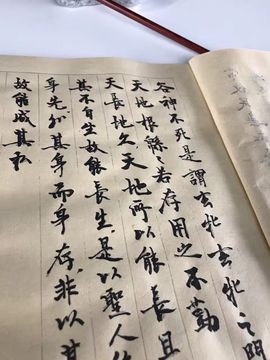 谷神不死是謂玄牝玄牝之門
天地根緜〻若存用之不勤
天長地久天地所以能長且
其不自生故能長生是以聖人
身先外其身而身存非以其
故能成其私